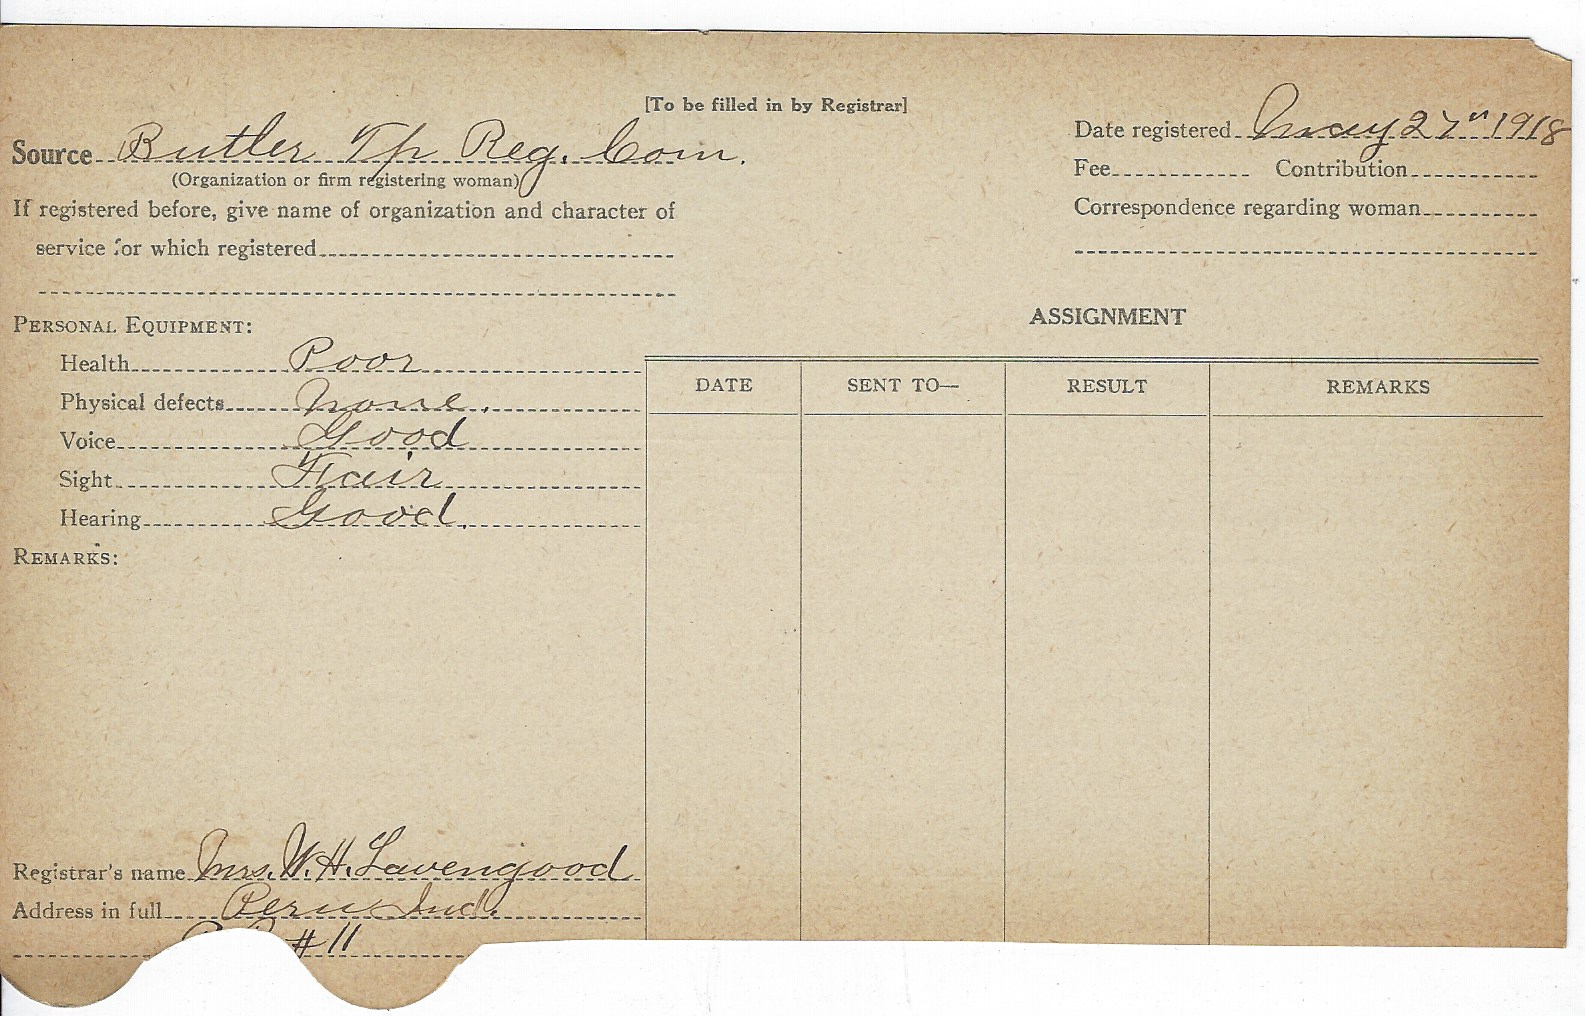 [To be filled in by Registrar]
Source Butler Tp Reg. Com.
(Organization or firm registering woman)
If registered before, give name of organization and character of
service for which registered
Date registered May 27" 1918
Fee Contribution
Correspondence regarding woman
PERSONAL EQUIPMENT:
Health Poor
Physical defects None.
Voice Good
Sight Fair
Hearing Good.
REMARKS:
ASSIGNMENT
DATE SENT TO— RESULT REMARKS
Registrar's name Mrs. W. H. Lavengood
Address in full Peru Ind.
# 11